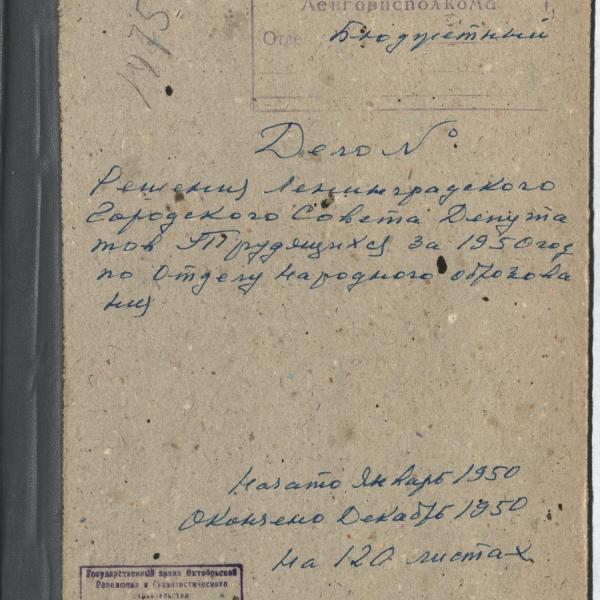 1975
Ленгорисполкома
Отде Бюджетный
Дело №
Решения Ленинградского
Городского Совета Депута
тов Трудящихся за 1950 год
по Отделу народного образова
ния
Начато Январь 1950
Окончено Декабрь 1950
На 120 листах
Государственный архив Октябрьской
Революции и Социалистического
строительства